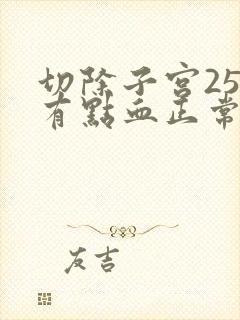 切除子宮25
有點血正常
友吉